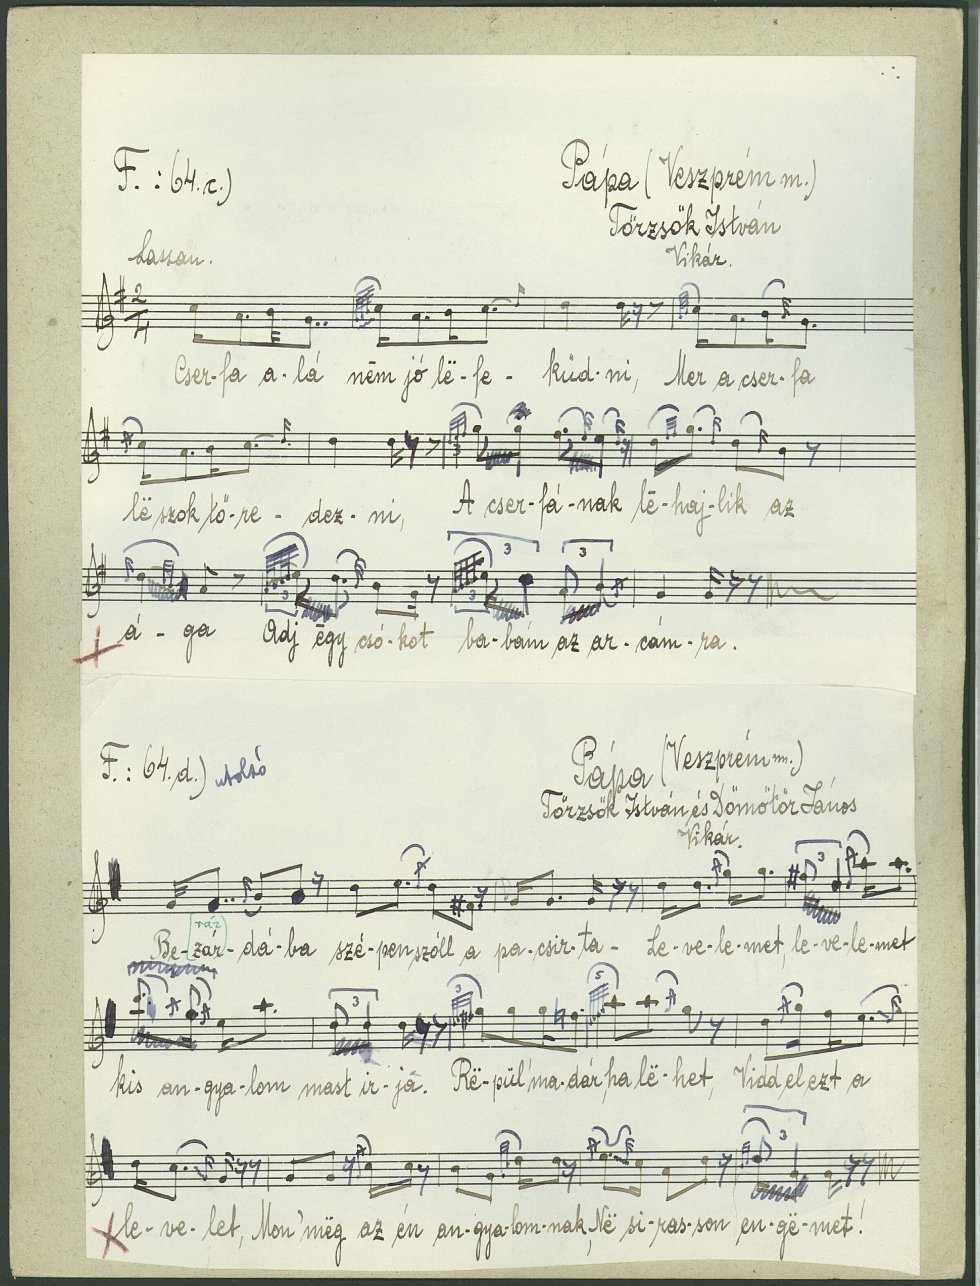 F.: 64.c.)
Pápa (Veszprém m.)
Törzsök István
Vikár.
Lassan.
2/4
Cser-fa a-lá nëm jó lë-fe - küd-ni, Mer a cser-fa
lë szok tö-re - dez - ni, A cser-fá-nak lë-haj-lik az
3
á - ga Adj ëgy csó-kot ba-bám az ar-cám-ra.
3 3 3 3
F.: 64.d.) utolsó
Pápa (Veszprém m.)
Törzsök István és Dömötör János
Vikár.
3
(ráz)
Be-zár-dá-ba szé-pen szóll a pa-csir-ta - Le-ve-le-met, le-ve-le-met
3 3 5
kis an-gya-lom mast ir-já. Rë-pül' ma-dár ha lë-het, Vidd el ezt a
3
le-ve-let, Mon' mëg az én an-gya-lom-nak, Në si-ras-son en-gë-met!